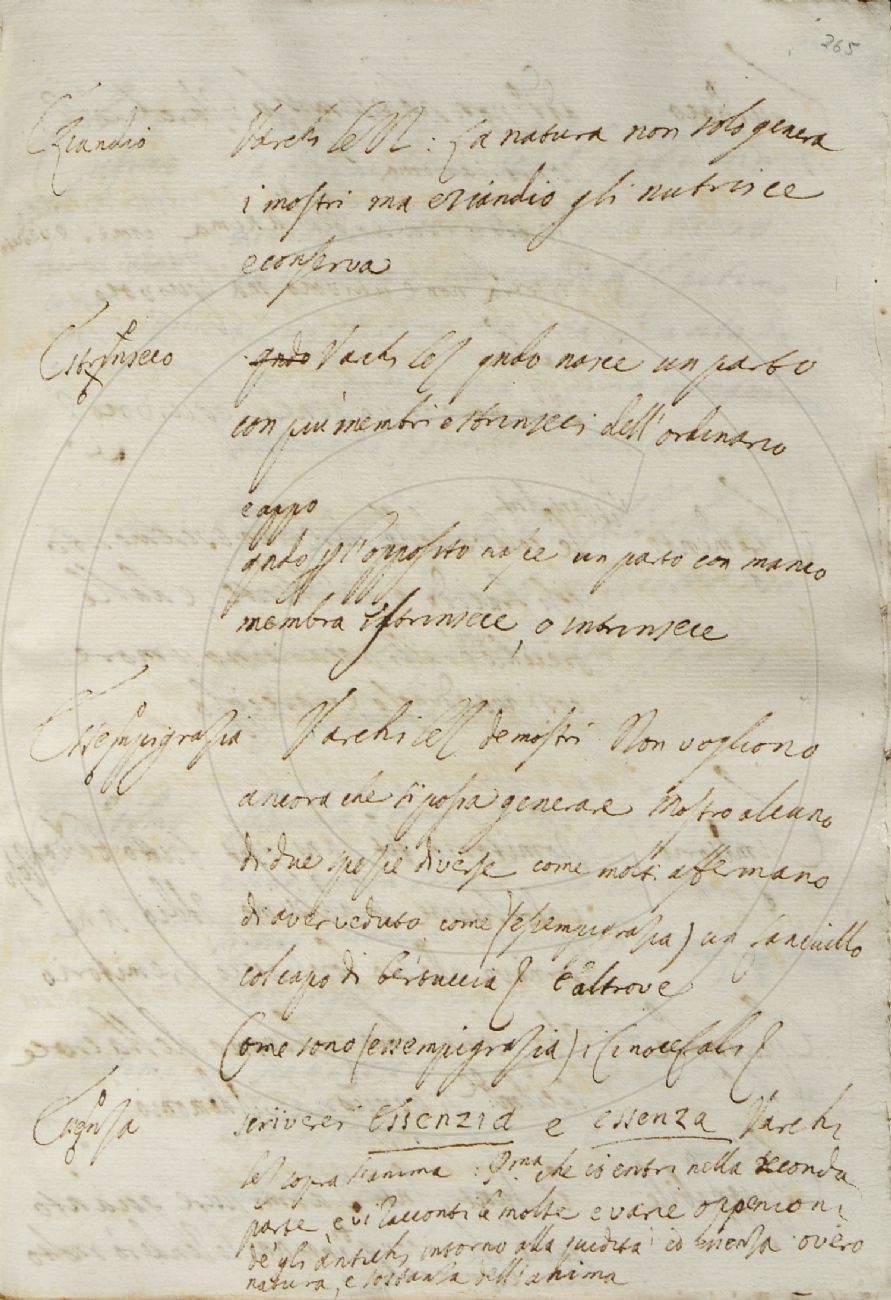 265
Eziandio Varchi lez : La natura non solo genera
i mostri ma eziandio gli nutrisce
e conserva
Estrinseco qndo Varchi lez qndo nasce un parto
con più membri estrinseci dell'ordinario
e appo
qndo p l'opposito nasce un parto con manco
membra istrinsece, o intrinsece
Essempigrazia Varchi lez de mostri Non vogliono
ancora che si possa generare Mostro alcuno
di due spezie diverse come molti affermano
di aver veduto come (essempigrazia) un fanciullo
col capo di bertuccia E altrove
Come sono (essempigrazia) i Cinocefali
scriverei essenzia e essenza Varchi
lez sopra l'anima : Pma che io entri nella seconda
parte, e vi racconti le molte e varie oppenioni
de gli antichi intorno alla quidità ed essenza overo
natura, e sostanza dell'anima